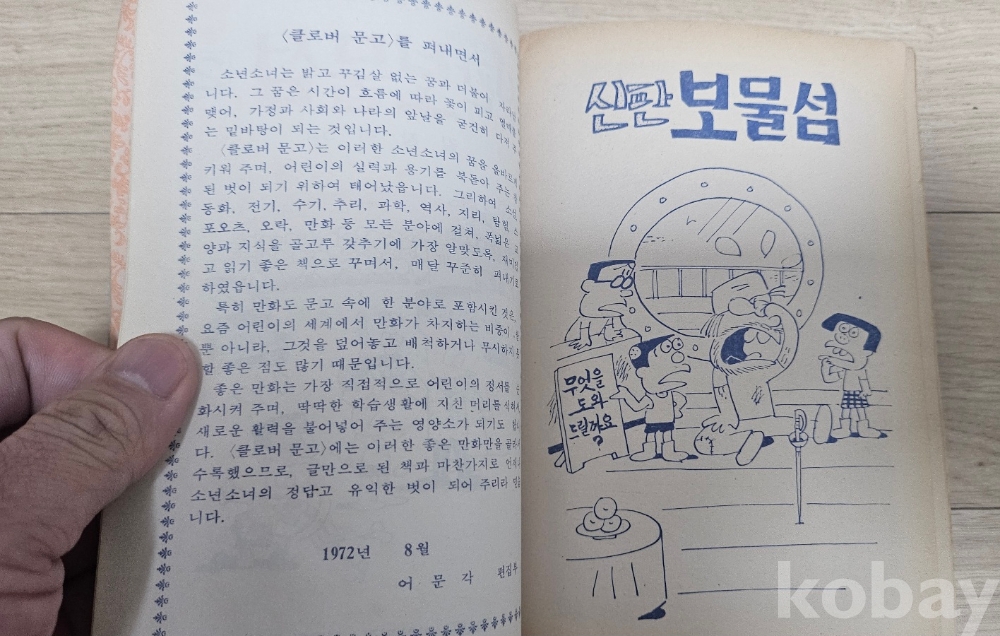 〈클로버 문고〉를 펴내면서
소년소녀는 밝고 꾸김살 없는 꿈과 더불어
니다. 그 꿈은 시간이 흐름에 따라 꽃이 피고
맺어, 가정과 사회와 나라의 앞날을 굳건히 다져
는 밑바탕이 되는 것입니다.
〈클로버 문고〉는 이러한 소년소녀의 꿈을
키워 주며, 어린이의 실력과 용기를 북돋아 주는
된 벗이 되기 위하여 태어났읍니다. 그리하여
동화, 전기, 수기, 추리, 과학, 역사, 지리, 탐험,
포오츠, 오락, 만화 등 모든 분야에 걸쳐, 폭넓은 교
양과 지식을 골고루 갖추기에 가장 알맞도록,
고 읽기 좋은 책으로 꾸며서, 매달 꾸준히 펴내기로
하였읍니다.
특히 만화도 문고 속에 한 분야로 포함시킨 것은,
요즘 어린이의 세계에서 만화가 차지하는 비중이
뿐 아니라, 그것을 덮어놓고 배척하거나 무시하지
할 좋은 점도 많기 때문입니다.
좋은 만화는 가장 직접적으로 어린이의 정서를
화시켜 주며, 딱딱한 학습생활에 지친 머리를 식혀
새로운 활력을 불어넣어 주는 영양소가 되기도
다. 〈클로버 문고〉에는 이러한 좋은 만화만을
수록했으므로, 글만으로 된 책과 마찬가지로
소년소녀의 정답고 유익한 벗이 되어 주리라
니다.
1972년 8월
어문각 편집부
신판 보물섬
무엇을
도와
드릴까요
?
kobay